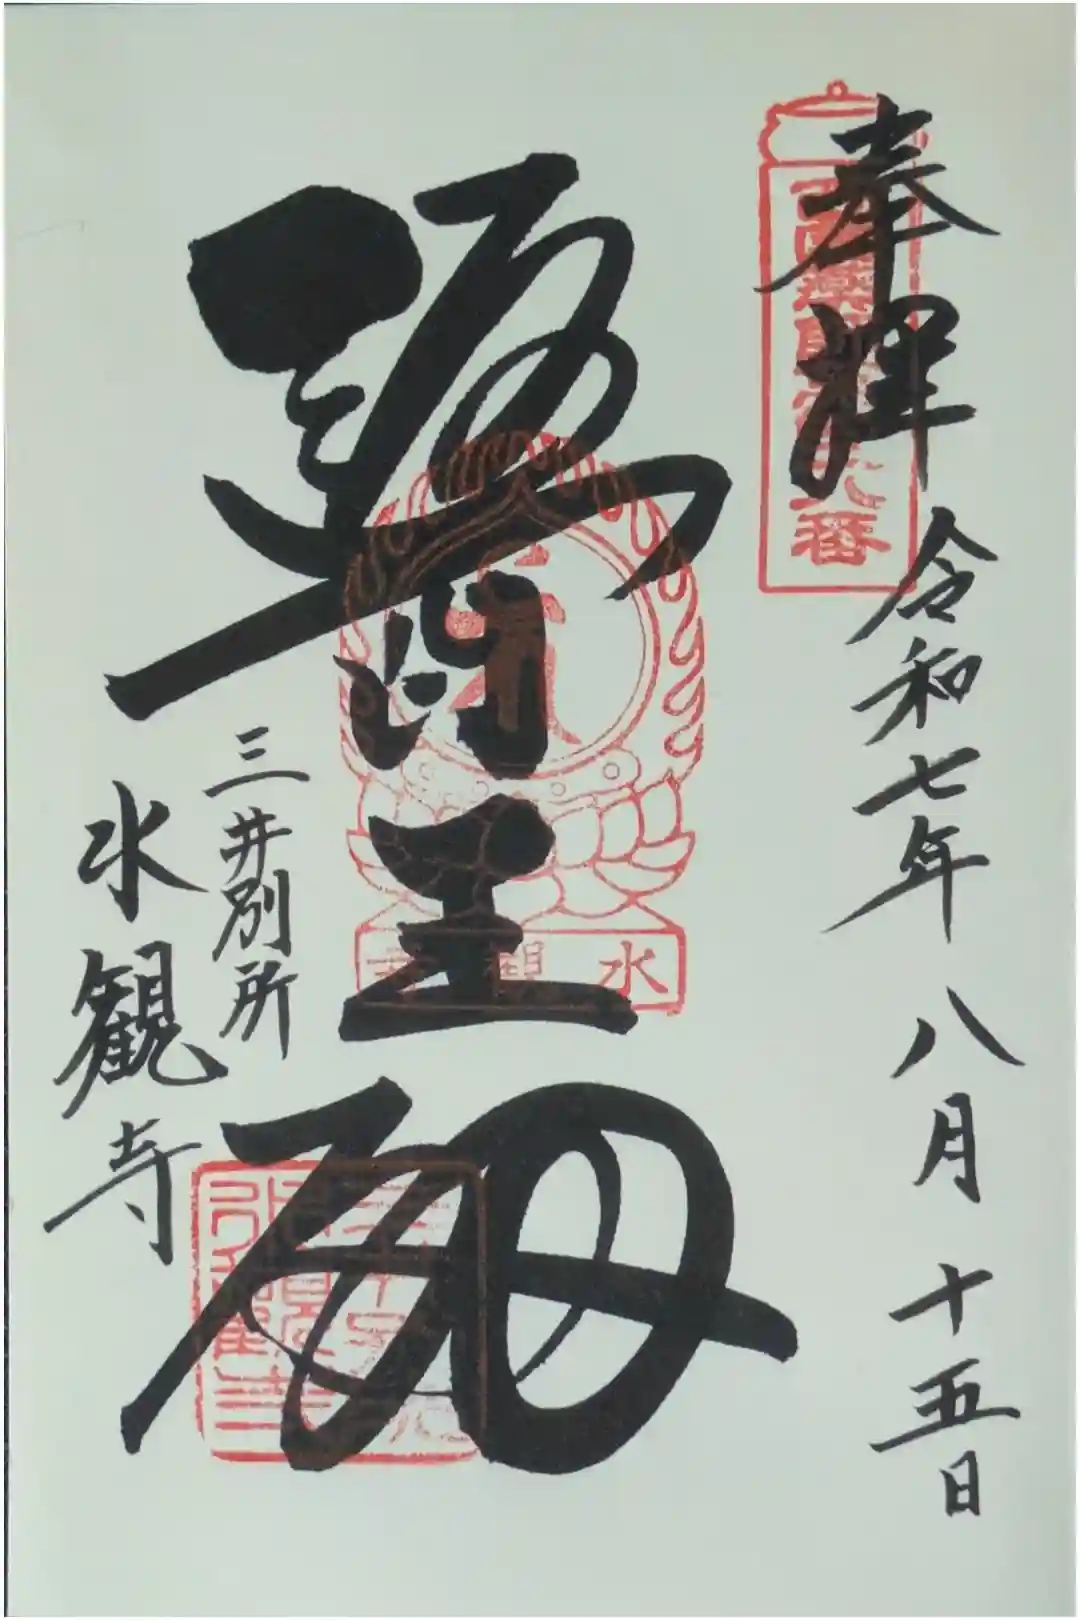 奉拝
令和七年八月十五日
醫王殿
三井別所
水観寺
水観寺